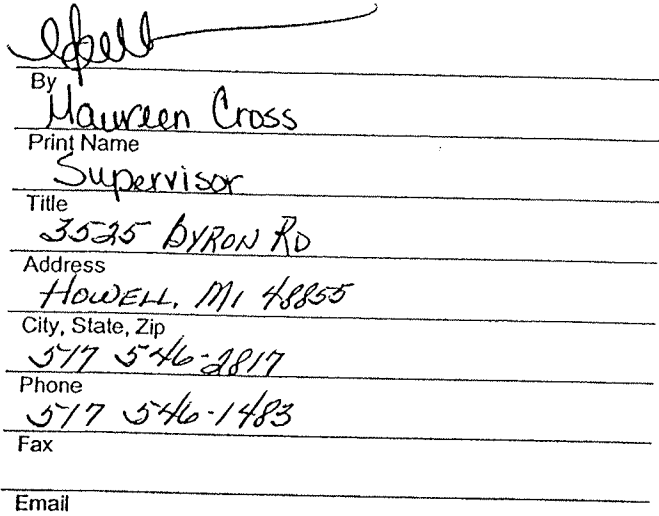 By
Maureen Cross
Print Name
Supervisor
Title
3525 BYRON RD
Address
HOWELL, MI 48855
City, State, Zip
517 546-2817
Phone
517 546-1483
Fax
Email